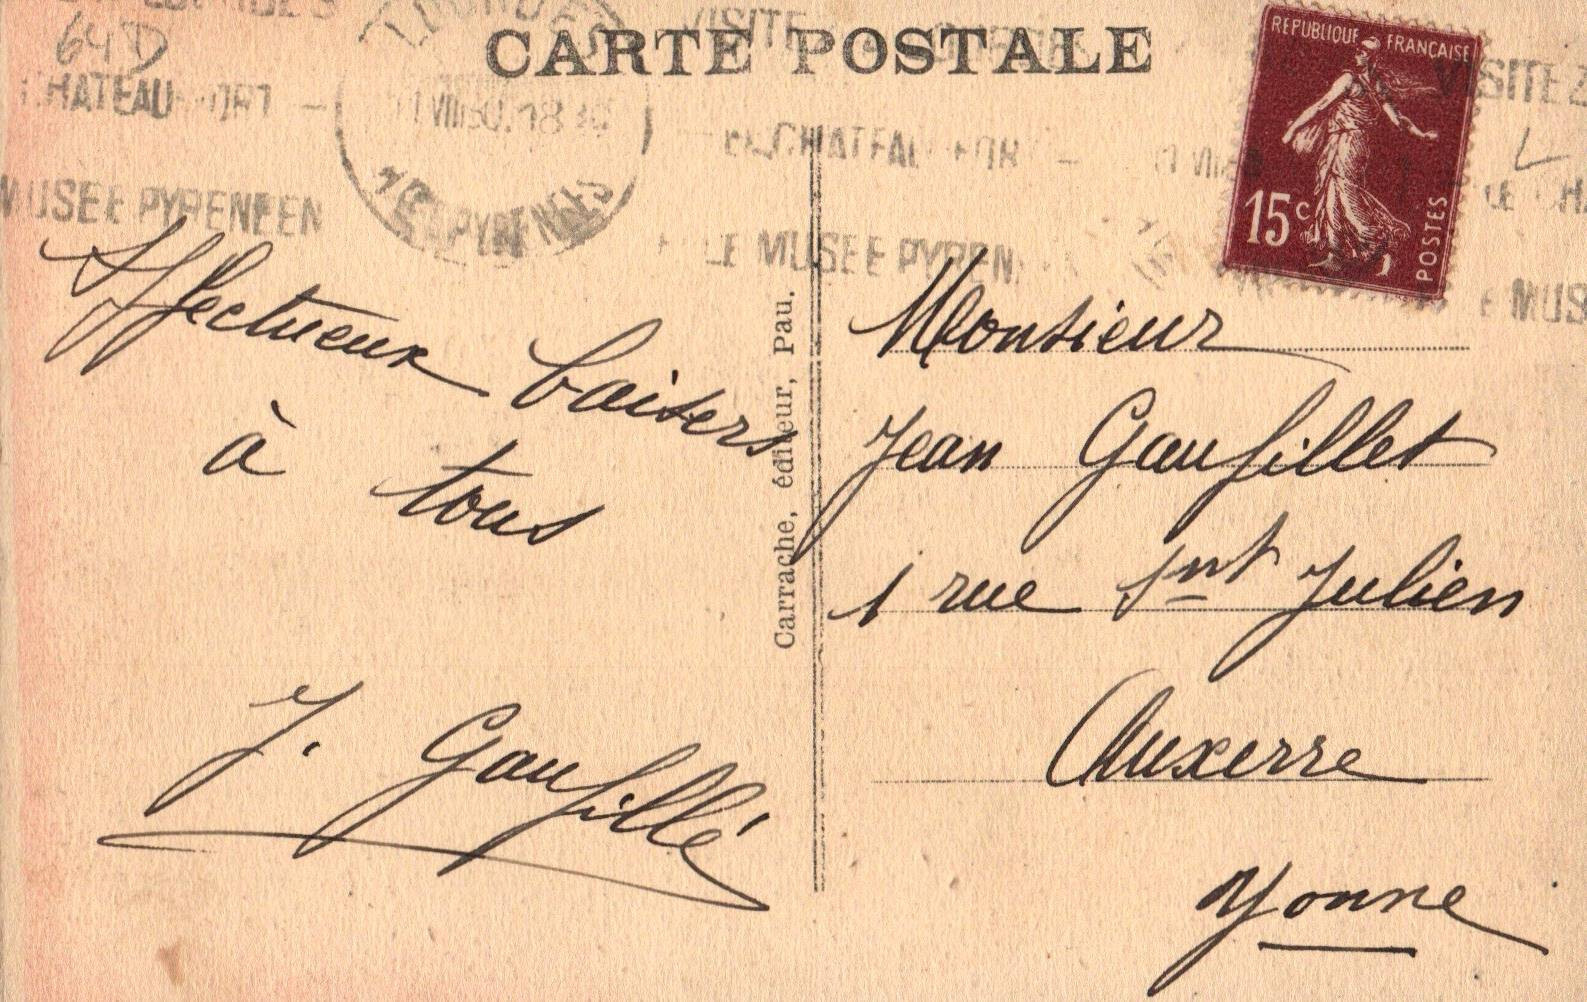 CARTE POSTALE
64 D
LOURDES
VISITEZ
CHATEAU FORT -
MUSEE PYRENEEN
VIII 30. 18
Htes PYRENEES
VISITE
LE CHATEAU FORT -
LE MUSEE PYREN
REPUBLIQUE FRANÇAISE
15c
POSTES
LE CHA
MUS
Affectueux baisers
à tous
J. Gaufillé
Carrache, éditeur, Pau.
Monsieur
Jean Gaufillet
1 rue Snt Julien
Auxerre
Yonne